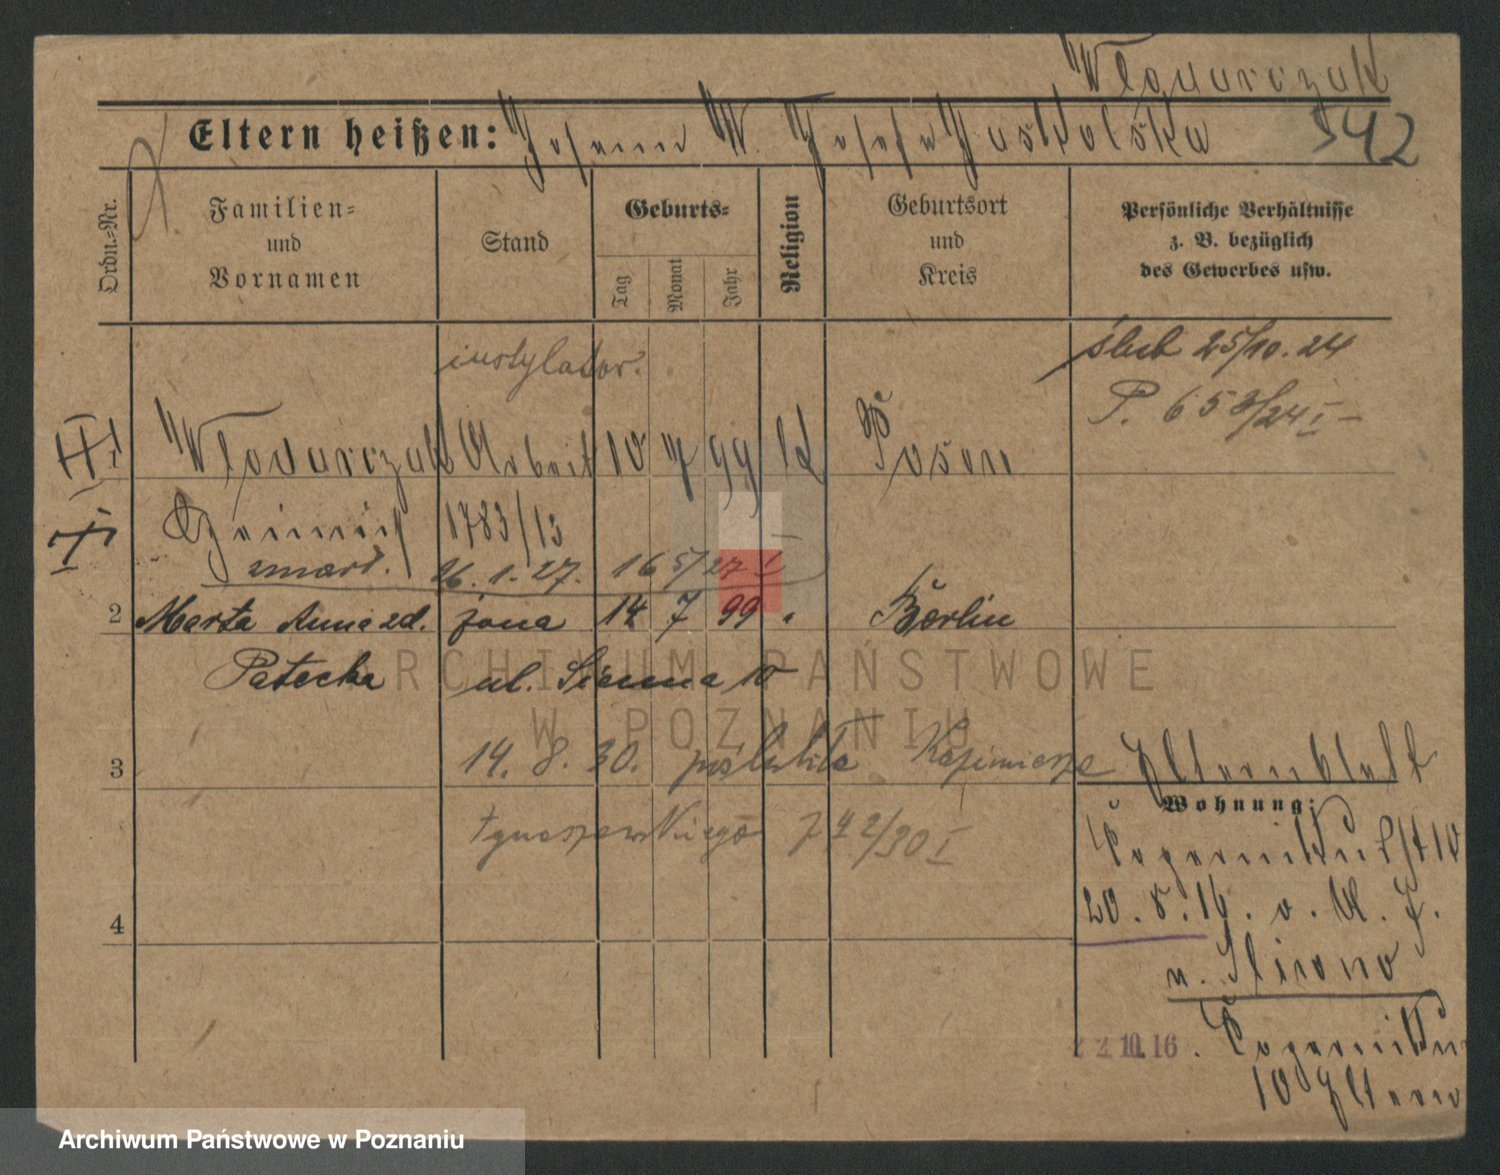 Włodarczak
Eltern heißen: Johann W. Josefa Juskolska 542
Ordn.-Nr.
Familien-
und
Vornamen
Stand
Geburts-
Tag
Monat
Jahr
Religion
Geburtsort
und
Kreis
Persönliche Verhältnisse
z. B. bezüglich
des Gewerbes usw.
instylator.
ślub 25/10.24
P. 65
1 Włodarczak Arbeit 10 7 99 k Posen
Heinrich 1783/13
zmarł. 26. 1. 27. 16 5/27 I
2 Marta Anna zd. żona 14 7 99 " Berlin
Patecka ul. Sienna 10
3 14. 8. 30. poślubiła Kazimierza Elternblatt
Wohnung:
Ignaszewskiego 742/30 I
10
20. 5. 16.
4
n.
22.10.16.
10 Eltern
ARCHIWUM PAŃSTWOWE
W POZNANIU
Archiwum Państwowe w Poznaniu